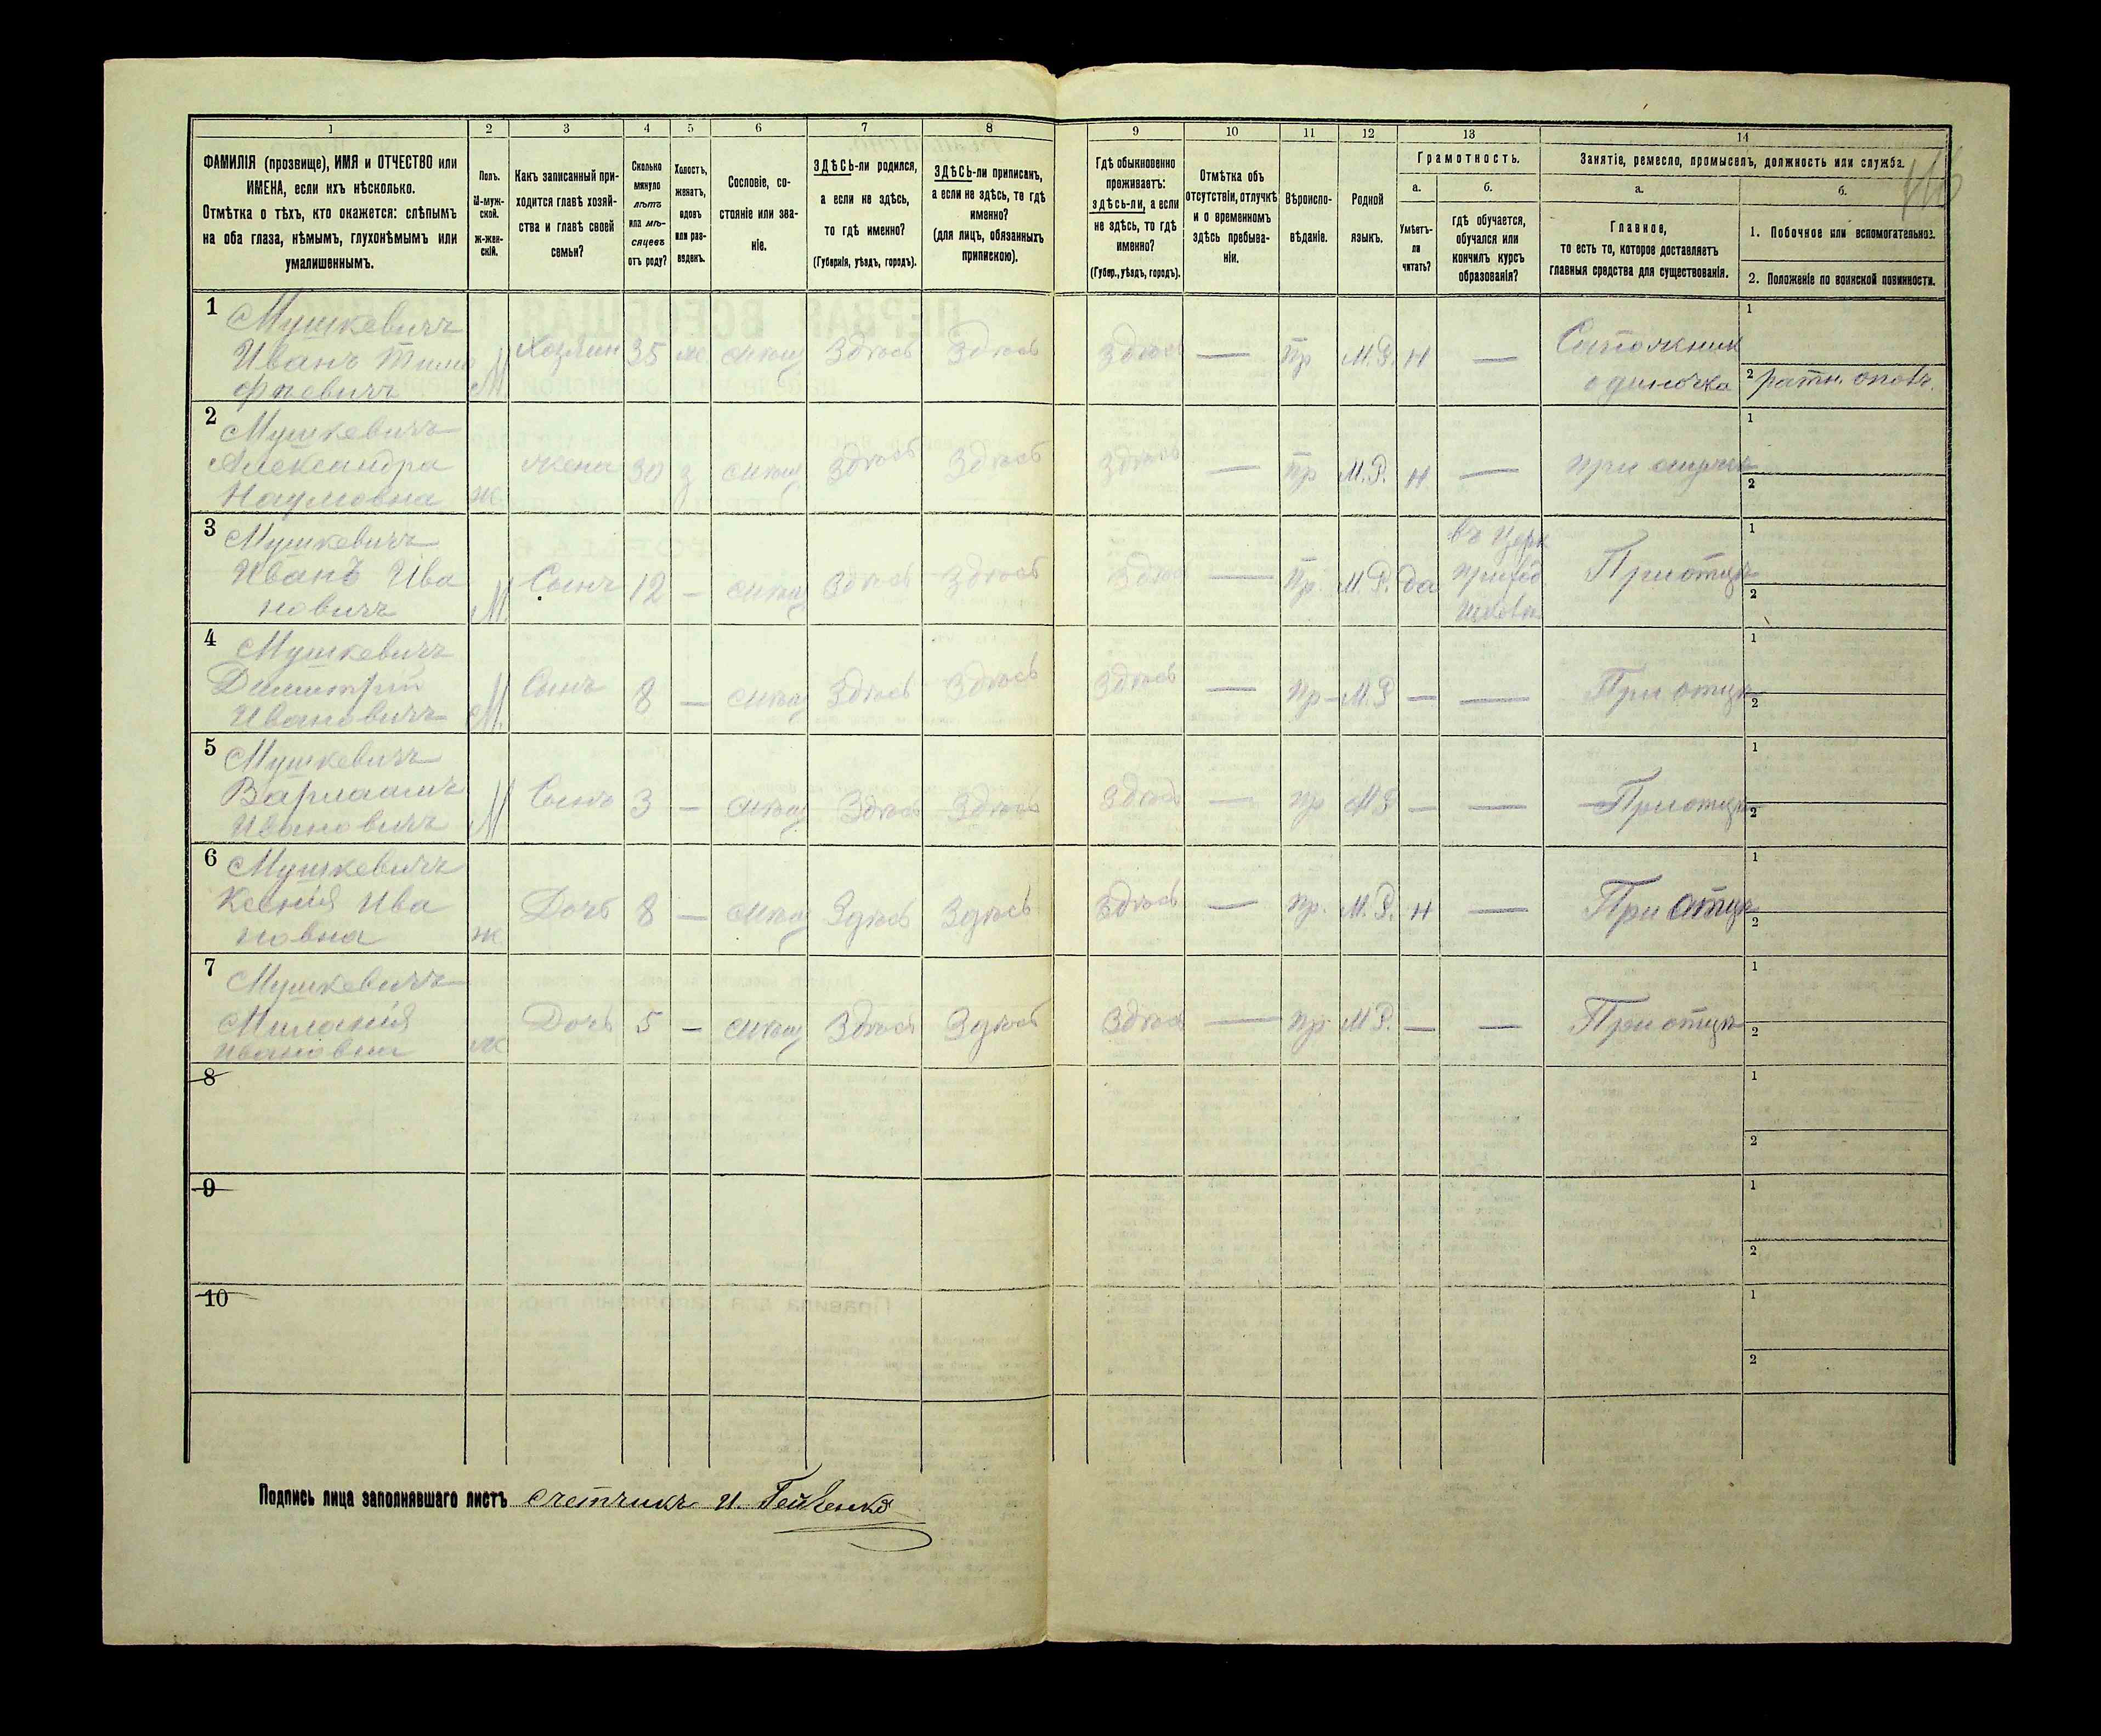 1 2 3 4 5 6 7 8 9 10 11 12 13 14
ФАМИЛІЯ (прозвище), ИМЯ и ОТЧЕСТВО или
ИМЕНА, если ихъ нѣсколько.
Отмѣтка о тѣхъ, кто окажется: слѣпымъ
на оба глаза, нѣмымъ, глухонѣмымъ или
умалишеннымъ.
Полъ.
М-муж-
ской.
Ж-жен-
скій.
Какъ записанный при-
ходится главѣ хозяй-
ства и главѣ своей
семьи?
Сколько
минуло
лѣтъ
или мѣ-
сяцевъ
отъ роду?
Холостъ,
женатъ,
вдовъ
или раз-
веденъ.
Сословіе, со-
стояніе или зва-
ніе.
ЗДѢСЬ-ли родился,
а если не здѣсь,
то гдѣ именно?
(Губернія, уѣздъ, городъ).
ЗДѢСЬ-ли приписанъ,
а если не здѣсь, то гдѣ
именно?
(для лицъ, обязанныхъ
припискою).
Гдѣ обыкновенно
проживаетъ:
здѣсь-ли, а если
не здѣсь, то гдѣ
именно?
(Губер., уѣздъ, городъ).
Отмѣтка объ
отсутствіи, отлучкѣ
и о временномъ
здѣсь пребыва-
ніи.
Вѣроиспо-
вѣданіе.
Родной
языкъ.
Грамотность.
а. б.
Умѣетъ-
ли
читать?
гдѣ обучается,
обучался или
кончилъ курсъ
образованія?
Занятіе, ремесло, промыселъ, должность или служба.
а. б.
Главное,
то есть то, которое доставляетъ
главныя средства для существованія.
1. Побочное или вспомогательное.
2. Положеніе по воинской повинности.
1 Мушкевичъ
Иванъ Тимо
фѣевичъ М Хозяин 35 ж Здѣсь Здѣсь Здѣсь — Пр М.Р. Н — Сапожник
одиночка
1
2 ратн. опол.
2 Мушкевичъ
Александра
Наумовна ж жена 30 з Здѣсь Здѣсь Здѣсь — Пр М.Р. Н —
1
2
3 Мушкевичъ
Иванъ Ива
новичъ М Сынъ 12 — Здѣсь Здѣсь Здѣсь — Пр. М.Р. да въ Церк
приход
При отцѣ
1
2
4 Мушкевичъ
Димитрій
Ивановичъ М. Сынъ 8 — Здѣсь Здѣсь Здѣсь — Пр М.Р — — При отцѣ
1
2
5 Мушкевичъ
Варлаамъ
Ивановичъ М Сынъ 3 — Здѣсь Здѣсь Здѣсь — Пр М.Р — — При отцѣ
1
2
6 Мушкевичъ
Ксенія Ива
новна ж. Дочь 8 — Здѣсь Здѣсь Здѣсь — Пр. М.Р. Н — При отцѣ
1
2
7 Мушкевичъ
Миланія
Ивановна ж Дочь 5 — Здѣсь Здѣсь Здѣсь — Пр М.Р. — — При отцѣ
1
2
8
1
2
9
1
2
10
1
2
Подпись лица заполнявшаго листъ счетчикъ И.